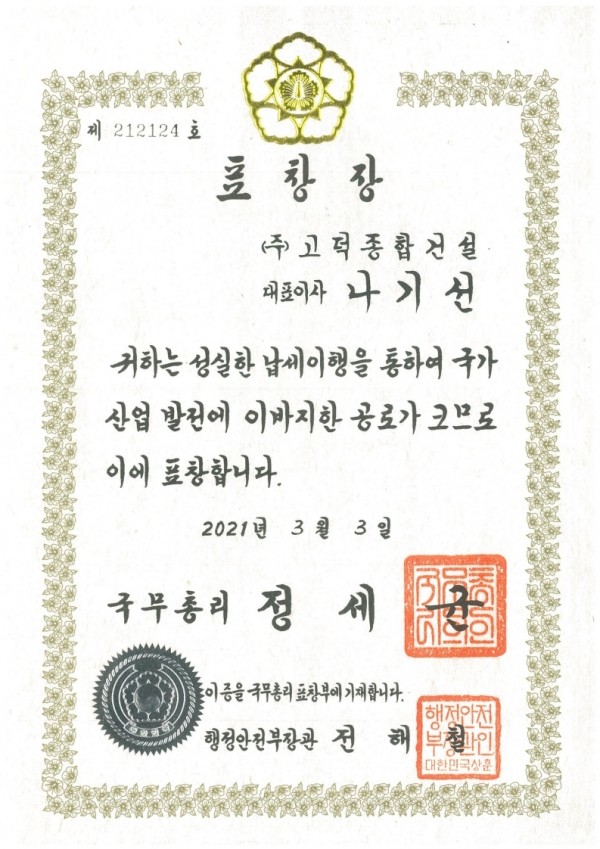 제 212124 호
표창장
(주)고덕종합건설
대표이사 나기선
귀하는 성실한 납세이행을 통하여 국가
산업 발전에 이바지한 공로가 크므로
이에 표창합니다.
2021년 3월 3일
국무총리 정세균
이 증을 국무총리 표창부에 기재합니다.
행정안전부장관 전해철
행정안전
부장관인
대한민국상훈